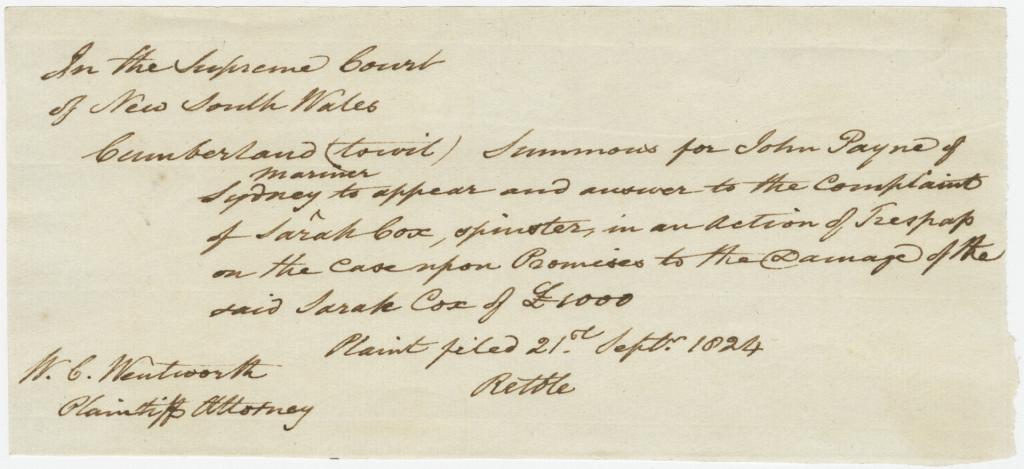 In the Supreme Court
of New South Wales
Cumberland (towit) Summons for John Payne of
mariner
Sydney to appear and answer to the Complaint
of Sarah Cox, spinster, in an Action of Trespass
on the Case upon Promises to the Damage of the
said Sarah Cox of £1000
Plaint filed 21.st Septr. 1824
W. C. Wentworth
Plaintiffs Attorney